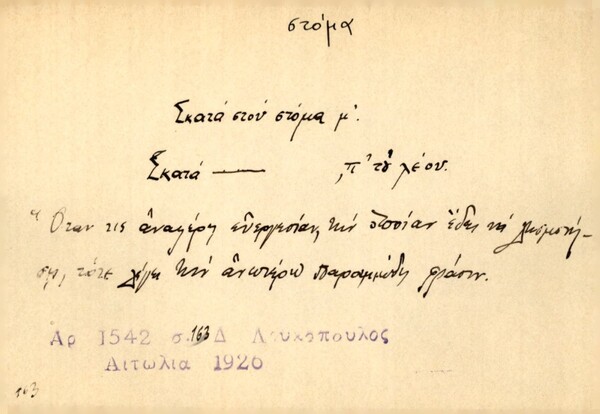 στόμα
Σκατά στού στόμα μ'.
Σκατά —— , π' τού λέου.
Ὅταν τις ἀναφέρῃ εὐεργεσίαν, τήν ὁποίαν ἔδει νά λησμονή-
σῃ, τότε λέγει τήν ἀνωτέρω παροιμιώδη φράσιν.
Αρ 1542 σ. 163 Δ Λουκοπουλος
Αιτωλια 1920
163